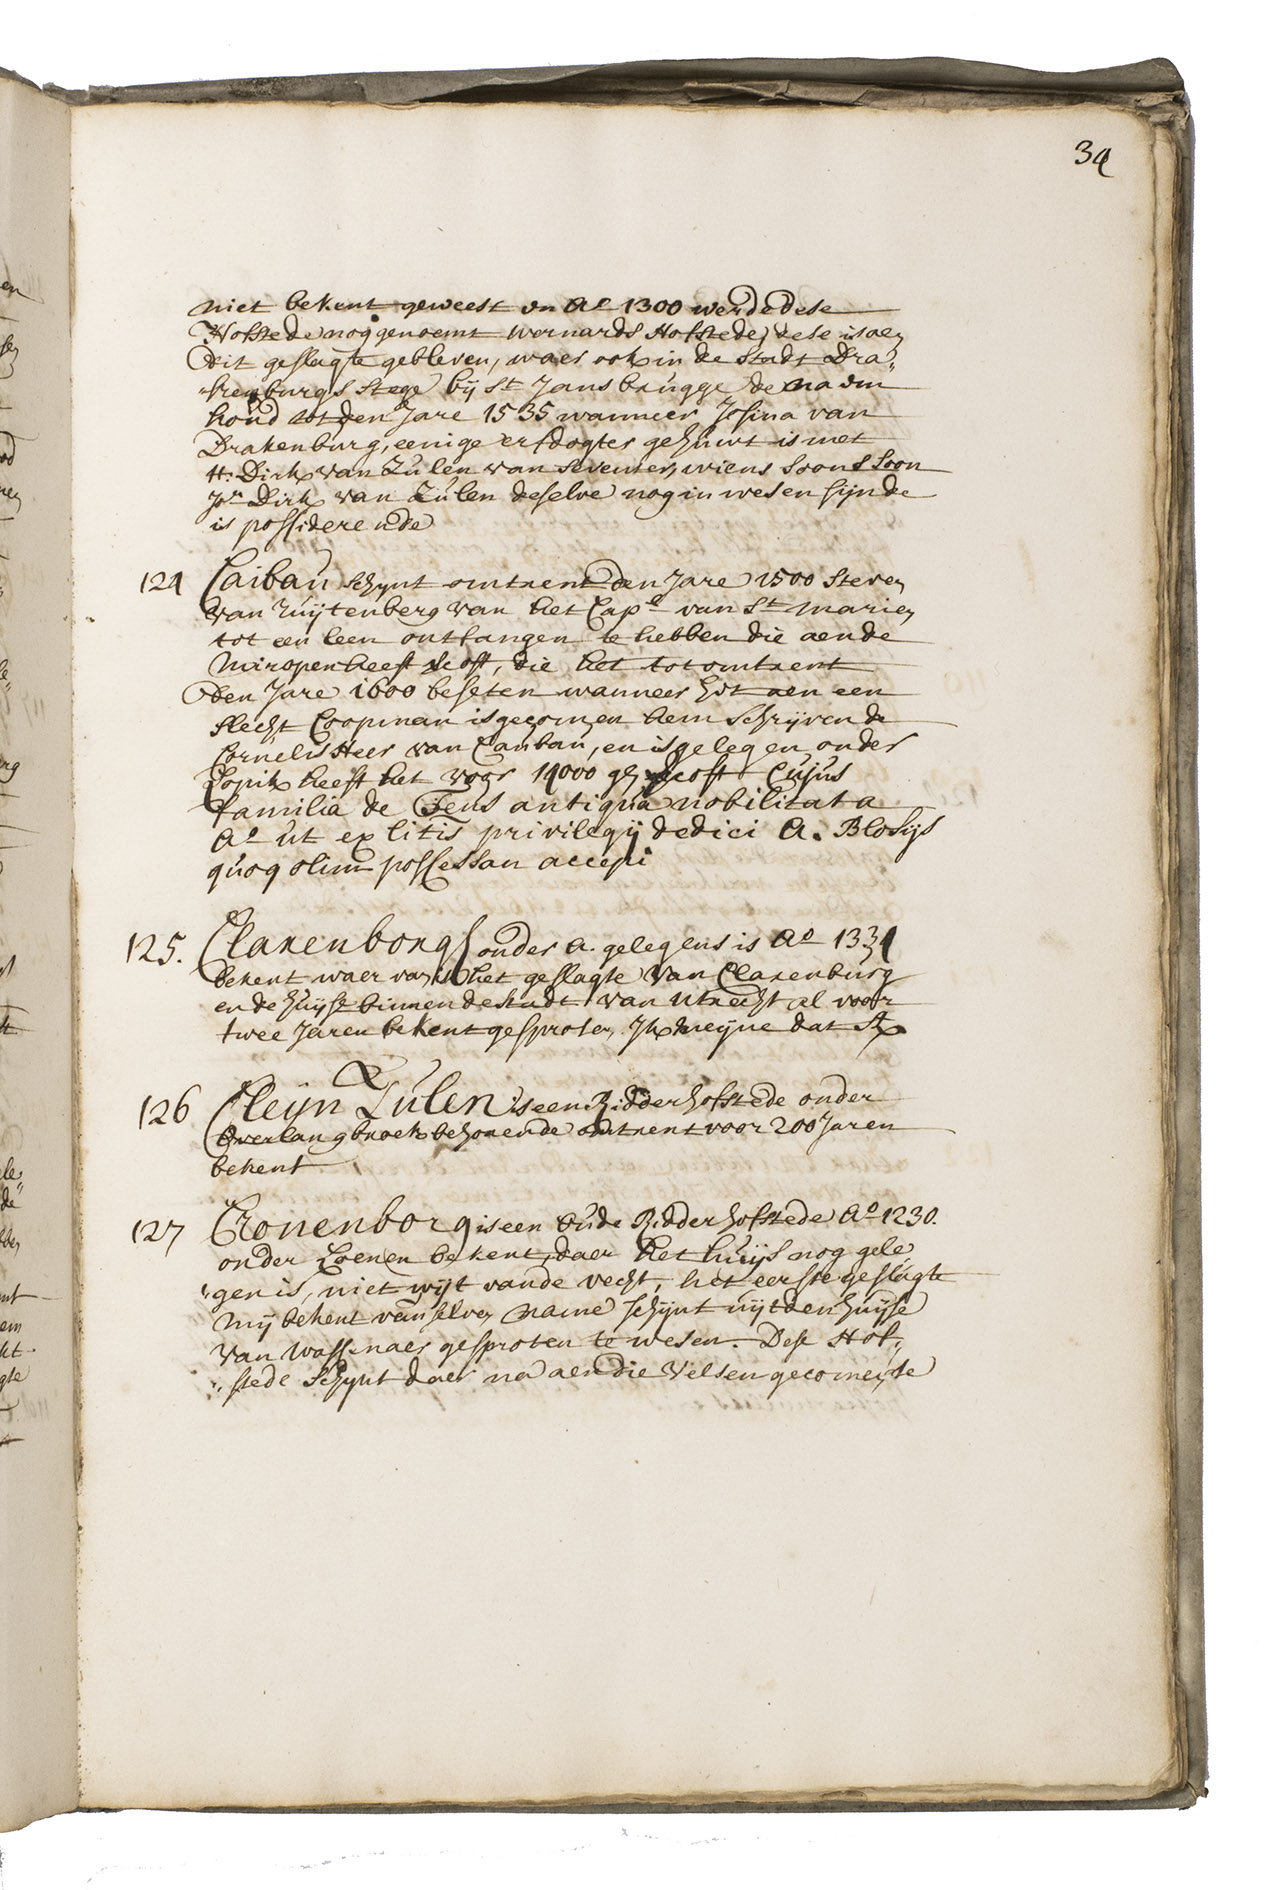 34
niet bekent geweest en Ao 1300 werde dese
Hofstede nog genoemt wernards Hofstede, dese is aen
dit geslagte gebleven, waer ook in de Stadt Dra„
„kenburgs Stege bij St Jans brugge de naem
houd tot den Jare 1535 wanneer Josina van
Drakenburg, eenige erfdogter gehuwt is met
H: Dirk van Zulen van sevenner, wiens soons soon
Jr Dirk van Zulen deselve nog in wesen sijnde
is possiderende
124 Caibau schynt omtrent den Jare 1500 Steven
van Zuijtenberg van het Capl van St marien
tot een leen ontfangen te hebben die aen de
Miropen heeft vercoft, die het tot omtrent
den Jare 1600 beseten wanneer het aen een
slecht Coopman is gecomen hem schrijvende
Cornelis Heer van Caubau, en is gelegen onder
Lopik heeft het voor 14000 gl gecoft Cujus
familia de Gens antiqua nobilitata
Ao ut ex litis privilegij dedici A. Blosijs
quoq olim possessan accepi
125. Clarenborg onder a. gelegens is Ao 1334
bekent waer van is het geslagte van Clarenburg
en de huijse binnen de stadt van utrecht al voor
twee Jaren bekent gesproten, Ik meijne dat &
126 Cleijn Zulen is een Ridderhofstede onder
Overlangbroek behorende omtrent voor 200 Jaren
bekent
127 Cronenborg is een oude Ridderhofstede Ao 1230.
onder Loenen bekent, daer het huijs nog gele„
„gen is, niet wijt vande vecht, het eerste geslagte
mij bekent van selven name schijnt uijt den huijse
van wassenaer gesproten te wesen. Dese Hof„
„stede schijnt daer na aen die Velsen gecomen te